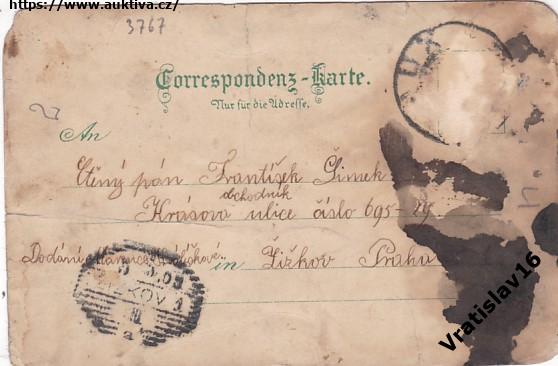 https://www.auktiva.cz/
3767
Correspondenz-Karte.
Nur für die Adresse.
An
Ctěný pán František Šimek
obchodník
Krásova ulice číslo 695-29
Dodání
in Žižkov Praha
Vratislav16